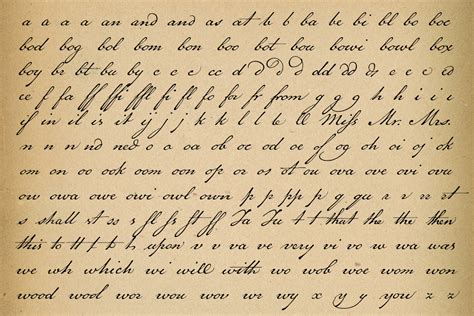 a a a a an and and as at b b ba be bi bl bo boc
bod bog bol bom bon boo bot bou bowi bowl box
boy br bt bu by c c c cc d d d d d dd do e e e ed
ce f fa ff ffi ffl fi fl fo for fr from g g g h h i i i
if in il is it ij j j j k k l l b ll Miſs Mr. Mrs.
n n n nd ned o o oa ob oc od oe of og oh oi oj ok
om on oo ook oom oon op or os ot ou ova ove ovi ovu
ow owa owe owi owl own p p pp p g qu r r rr rt
s shall st ss s fl ſs ſt ff Ta Tu t t that the the then
this to tt t t u upon v v va ve very vi vo w wa was
we wh which wi will with wo wob woe wom won
wood wool wor wou wow wr wy x y y you z z